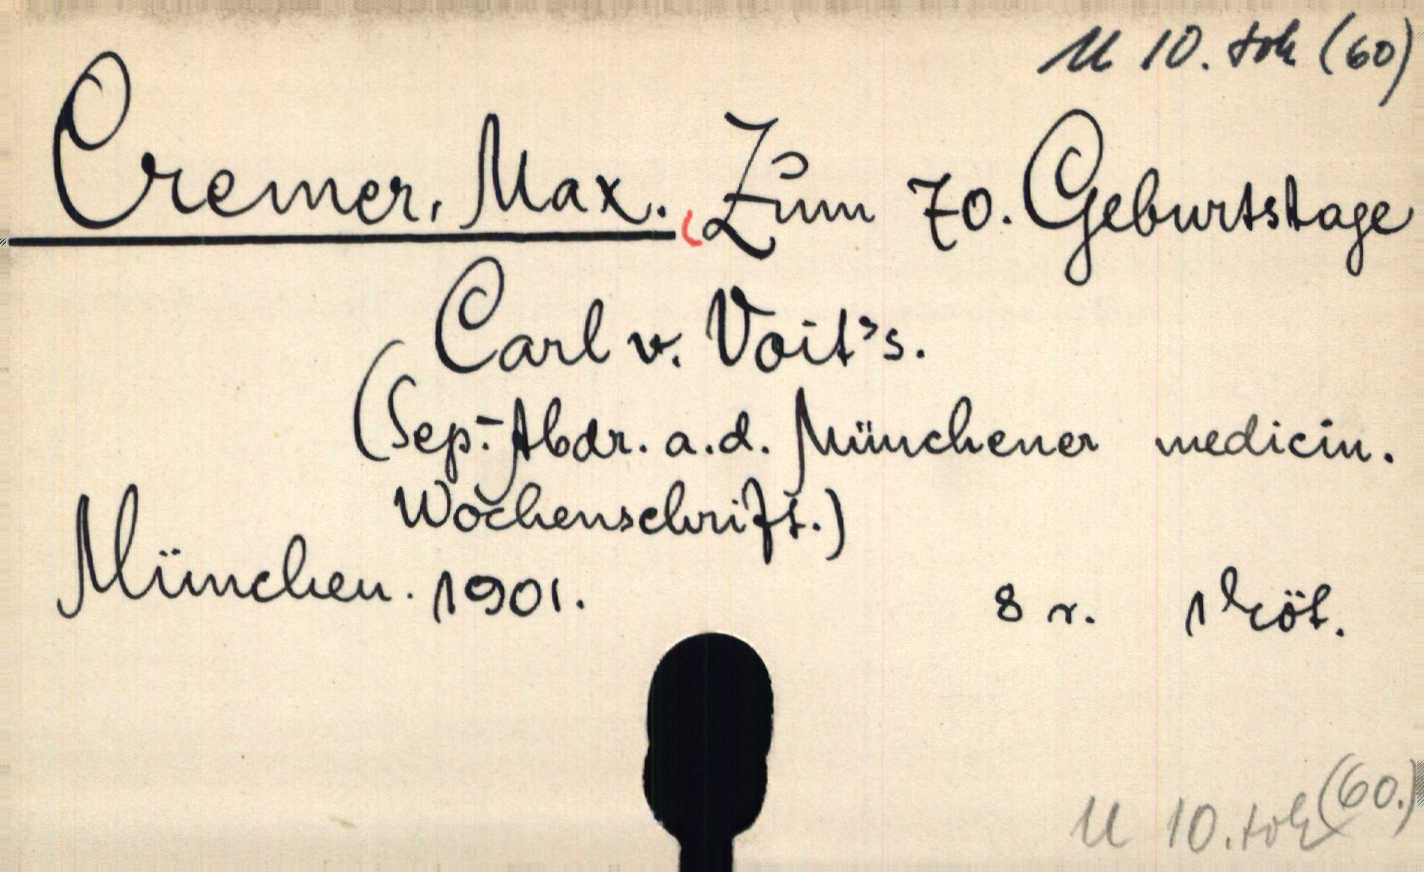 U 10. tok (60)
Cremer, Max. Zum 70. Geburtstage
Carl v. Voit's.
(Sep.-Abdr. a. d. Münchener medicin.
Wochenschrift.)
München. 1901. 8 r. 1 köt.
U 10. tok (60.)